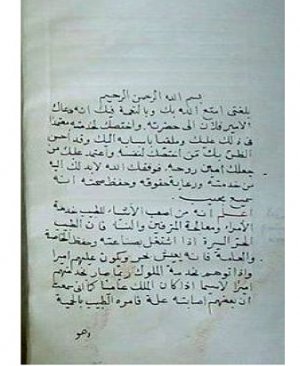 بسم الله الرحمن الرحيم
بلغني امتع الله بك وبالنعمة فيك انه دعاك
الامير فلان الى حضرته واختصك لخدمته معتمدا
في ذلك عليك وملقيا باسبابه اليك وقد احسن
الظن بك من اختصك لنفسه واعتمد عليك من
جعلك امين روحه فوفقك الله لاذلك اليه
من خدمته ورعاية حقوقه وحفظ صحته انه
سميع مجيب
اعلم انه من اصعب الاشياء للطبيب خدمة
الامراء ومعالجة المترفين والنساء فان الطبيب
الحر السيرة اذا اشتغل بصناعته وحفظ الخاصة
والعامة فانه يعيش بخير ويكون عليهم اميرا
واذا توهم خدمة الملوك صار خدمتهم
اميرا لاسيما اذا كان الملك غاشما كما اني سمعت
ان بعضهم اصابته علة فامره الطبيب بالحمية
وهو